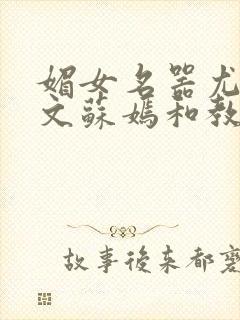 媚女名器尤
文蘇媽和教
故事後来都